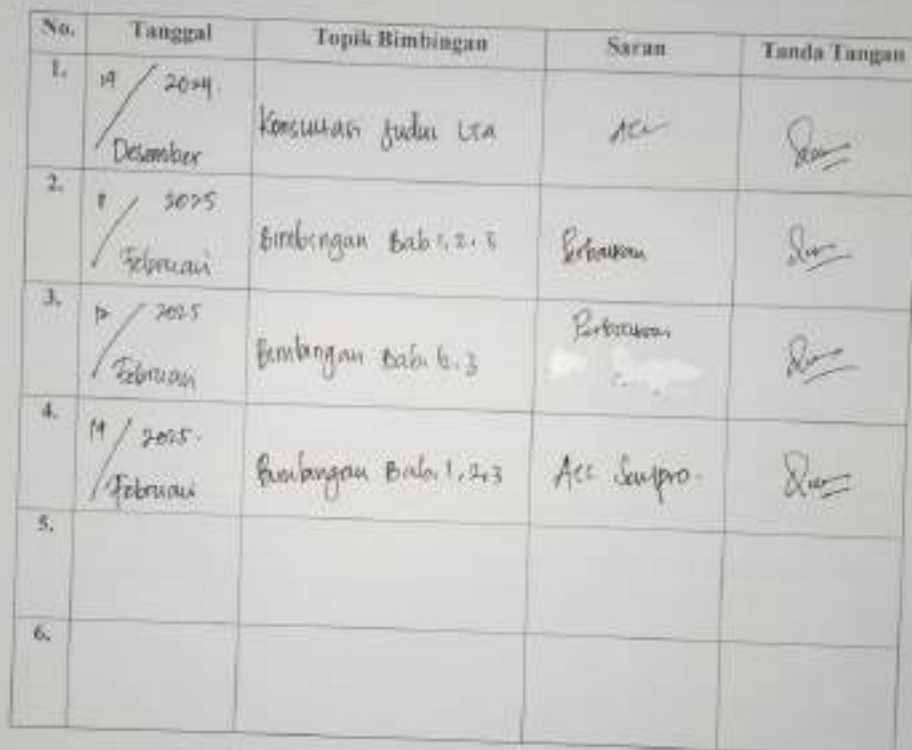 No. Tanggal Topik Bimbingan Saran Tanda Tangan
1. 19 / 2024. Desember Konsultasi Judul LTA Acc
2. / 2025 Februari Bimbingan Bab 1, 2, 3 Perbaikan
3. / 2025 Februari Bimbingan Bab 3 Perbaikan
4. / 2025. Februari Bimbingan Bab 1,2,3 Acc Sempro.
5.
6.